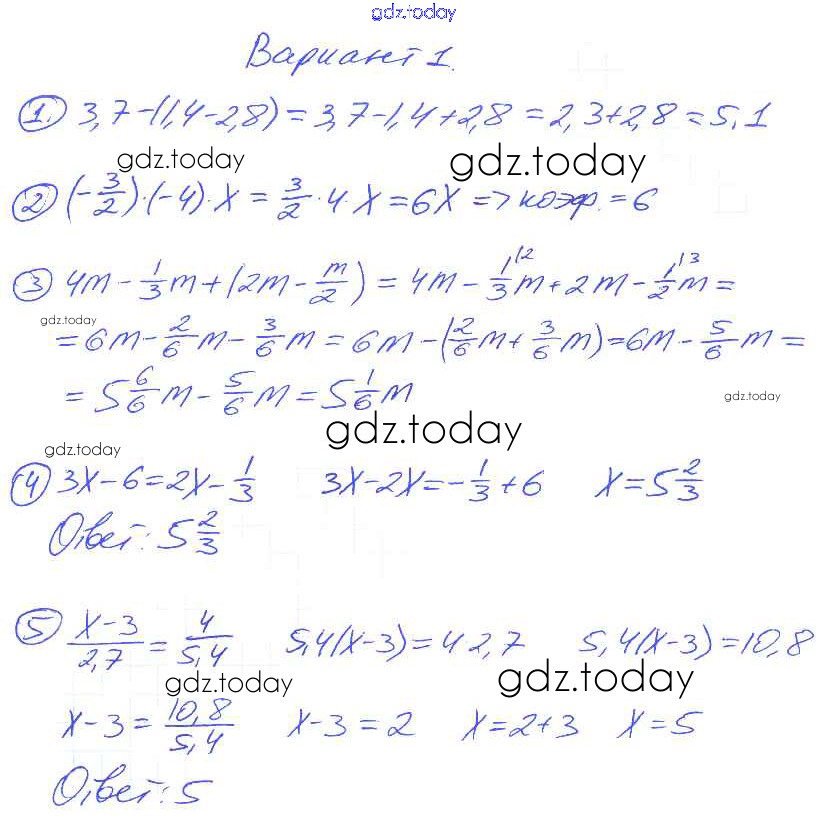 gdz.today
Вариант 1.
① 3,7-(1,4-2,8)=3,7-1,4+2,8=2,3+2,8=5,1
gdz.today gdz.today
② (-3/2)·(-4)·x=3/2·4·x=6x=>коэф.=6
③ 4m-1/3m+(2m-m/2)=4m-1/3^{12}m+2m-1/2^{13}m=
gdz.today
=6m-2/6m-3/6m=6m-(2/6m+3/6m)=6m-5/6m=
=5 6/6m-5/6m=5 1/6m
gdz.today
gdz.today
gdz.today
④ 3x-6=2x-1/3 3x-2x=-1/3+6 x=5 2/3
Ответ: 5 2/3
⑤ x-3/2,7=4/5,4 5,4(x-3)=4·2,7 5,4(x-3)=10,8
gdz.today gdz.today
x-3=10,8/5,4 x-3=2 x=2+3 x=5
Ответ: 5